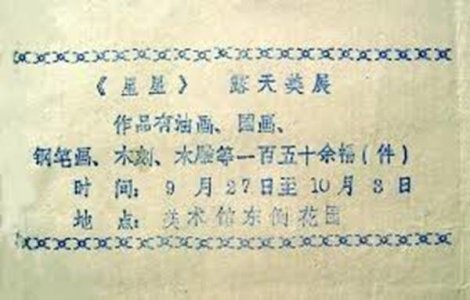 《星星》 露天美展
作品有油画、国画、
钢笔画、木刻、木雕等一百五十余幅(件)
时 间: 9 月 27日至 10 月 3 日
地 点: 美术馆东侧花园